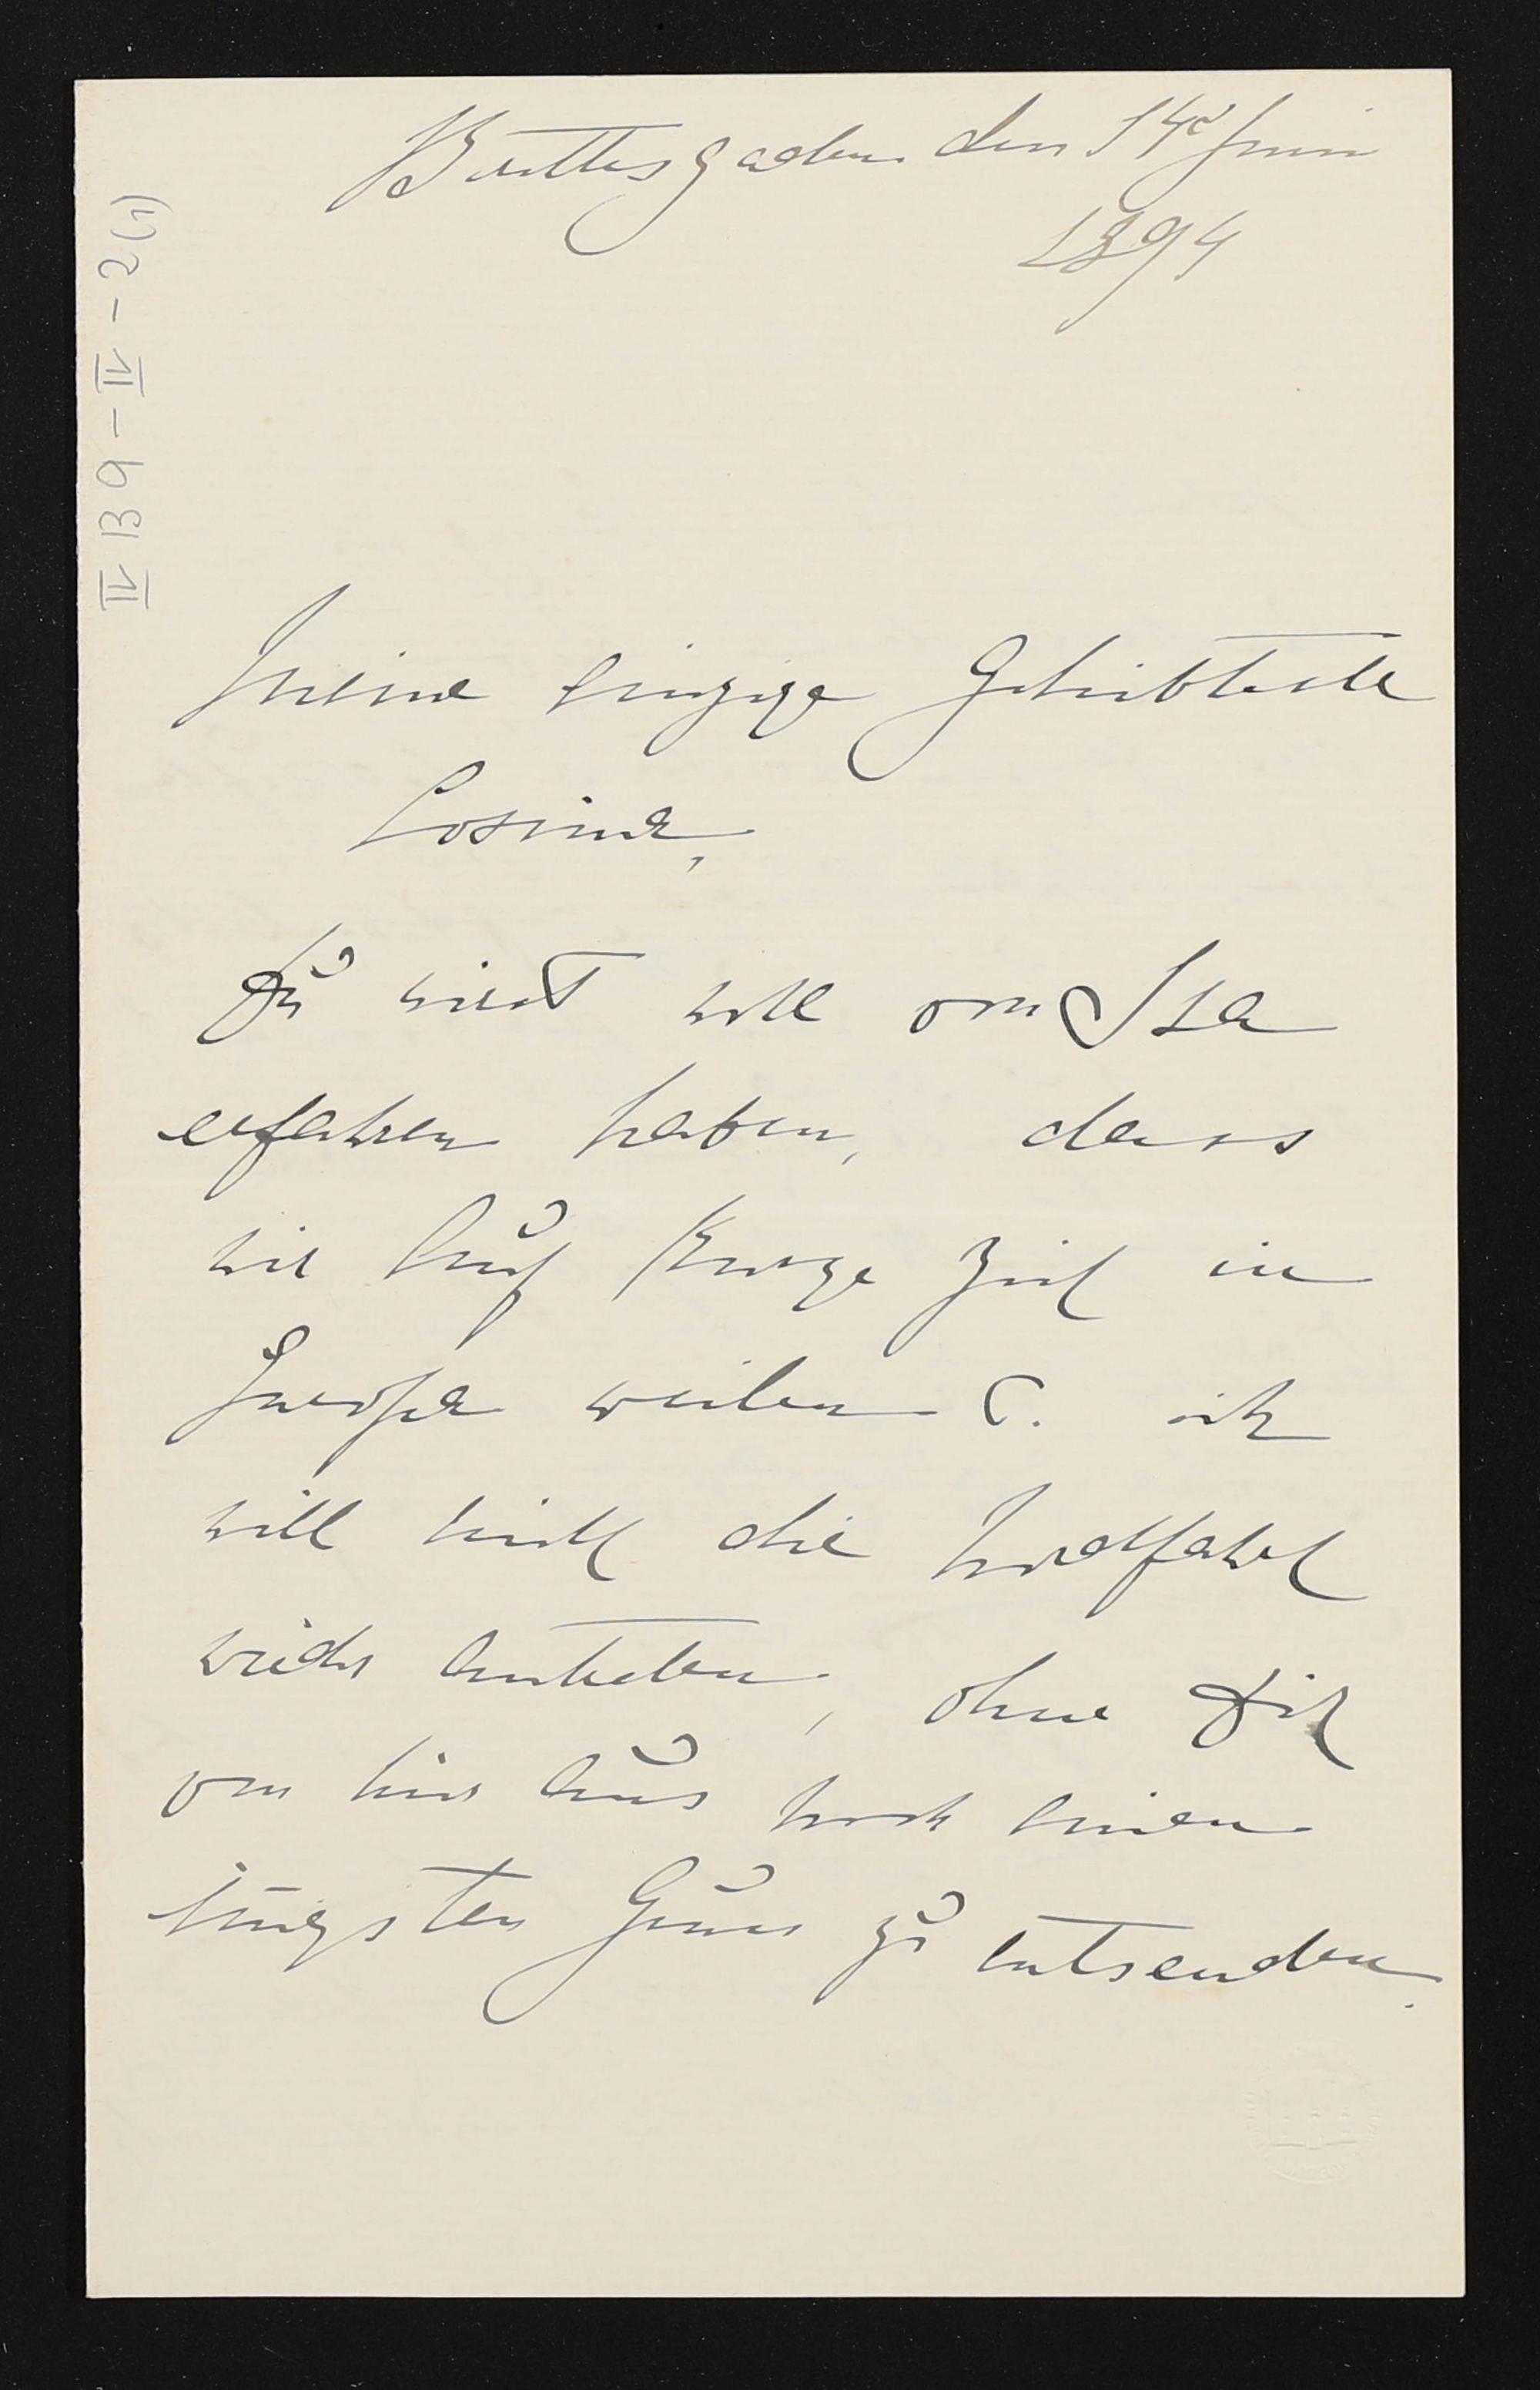 Berchtesgaden den 14t Juni
1894
IV B 9 – IV – 2 (1)
Meine einzige Geliebteste
Cosima,
Du wirst woll von Isa
erfahren haben, dass
wir auf kurze Zeit in
Europa weilen u. ich
will nicht die
wieder antreten, ohne Dich
von hier aus noch einen
innigsten Gruss zu entsenden.